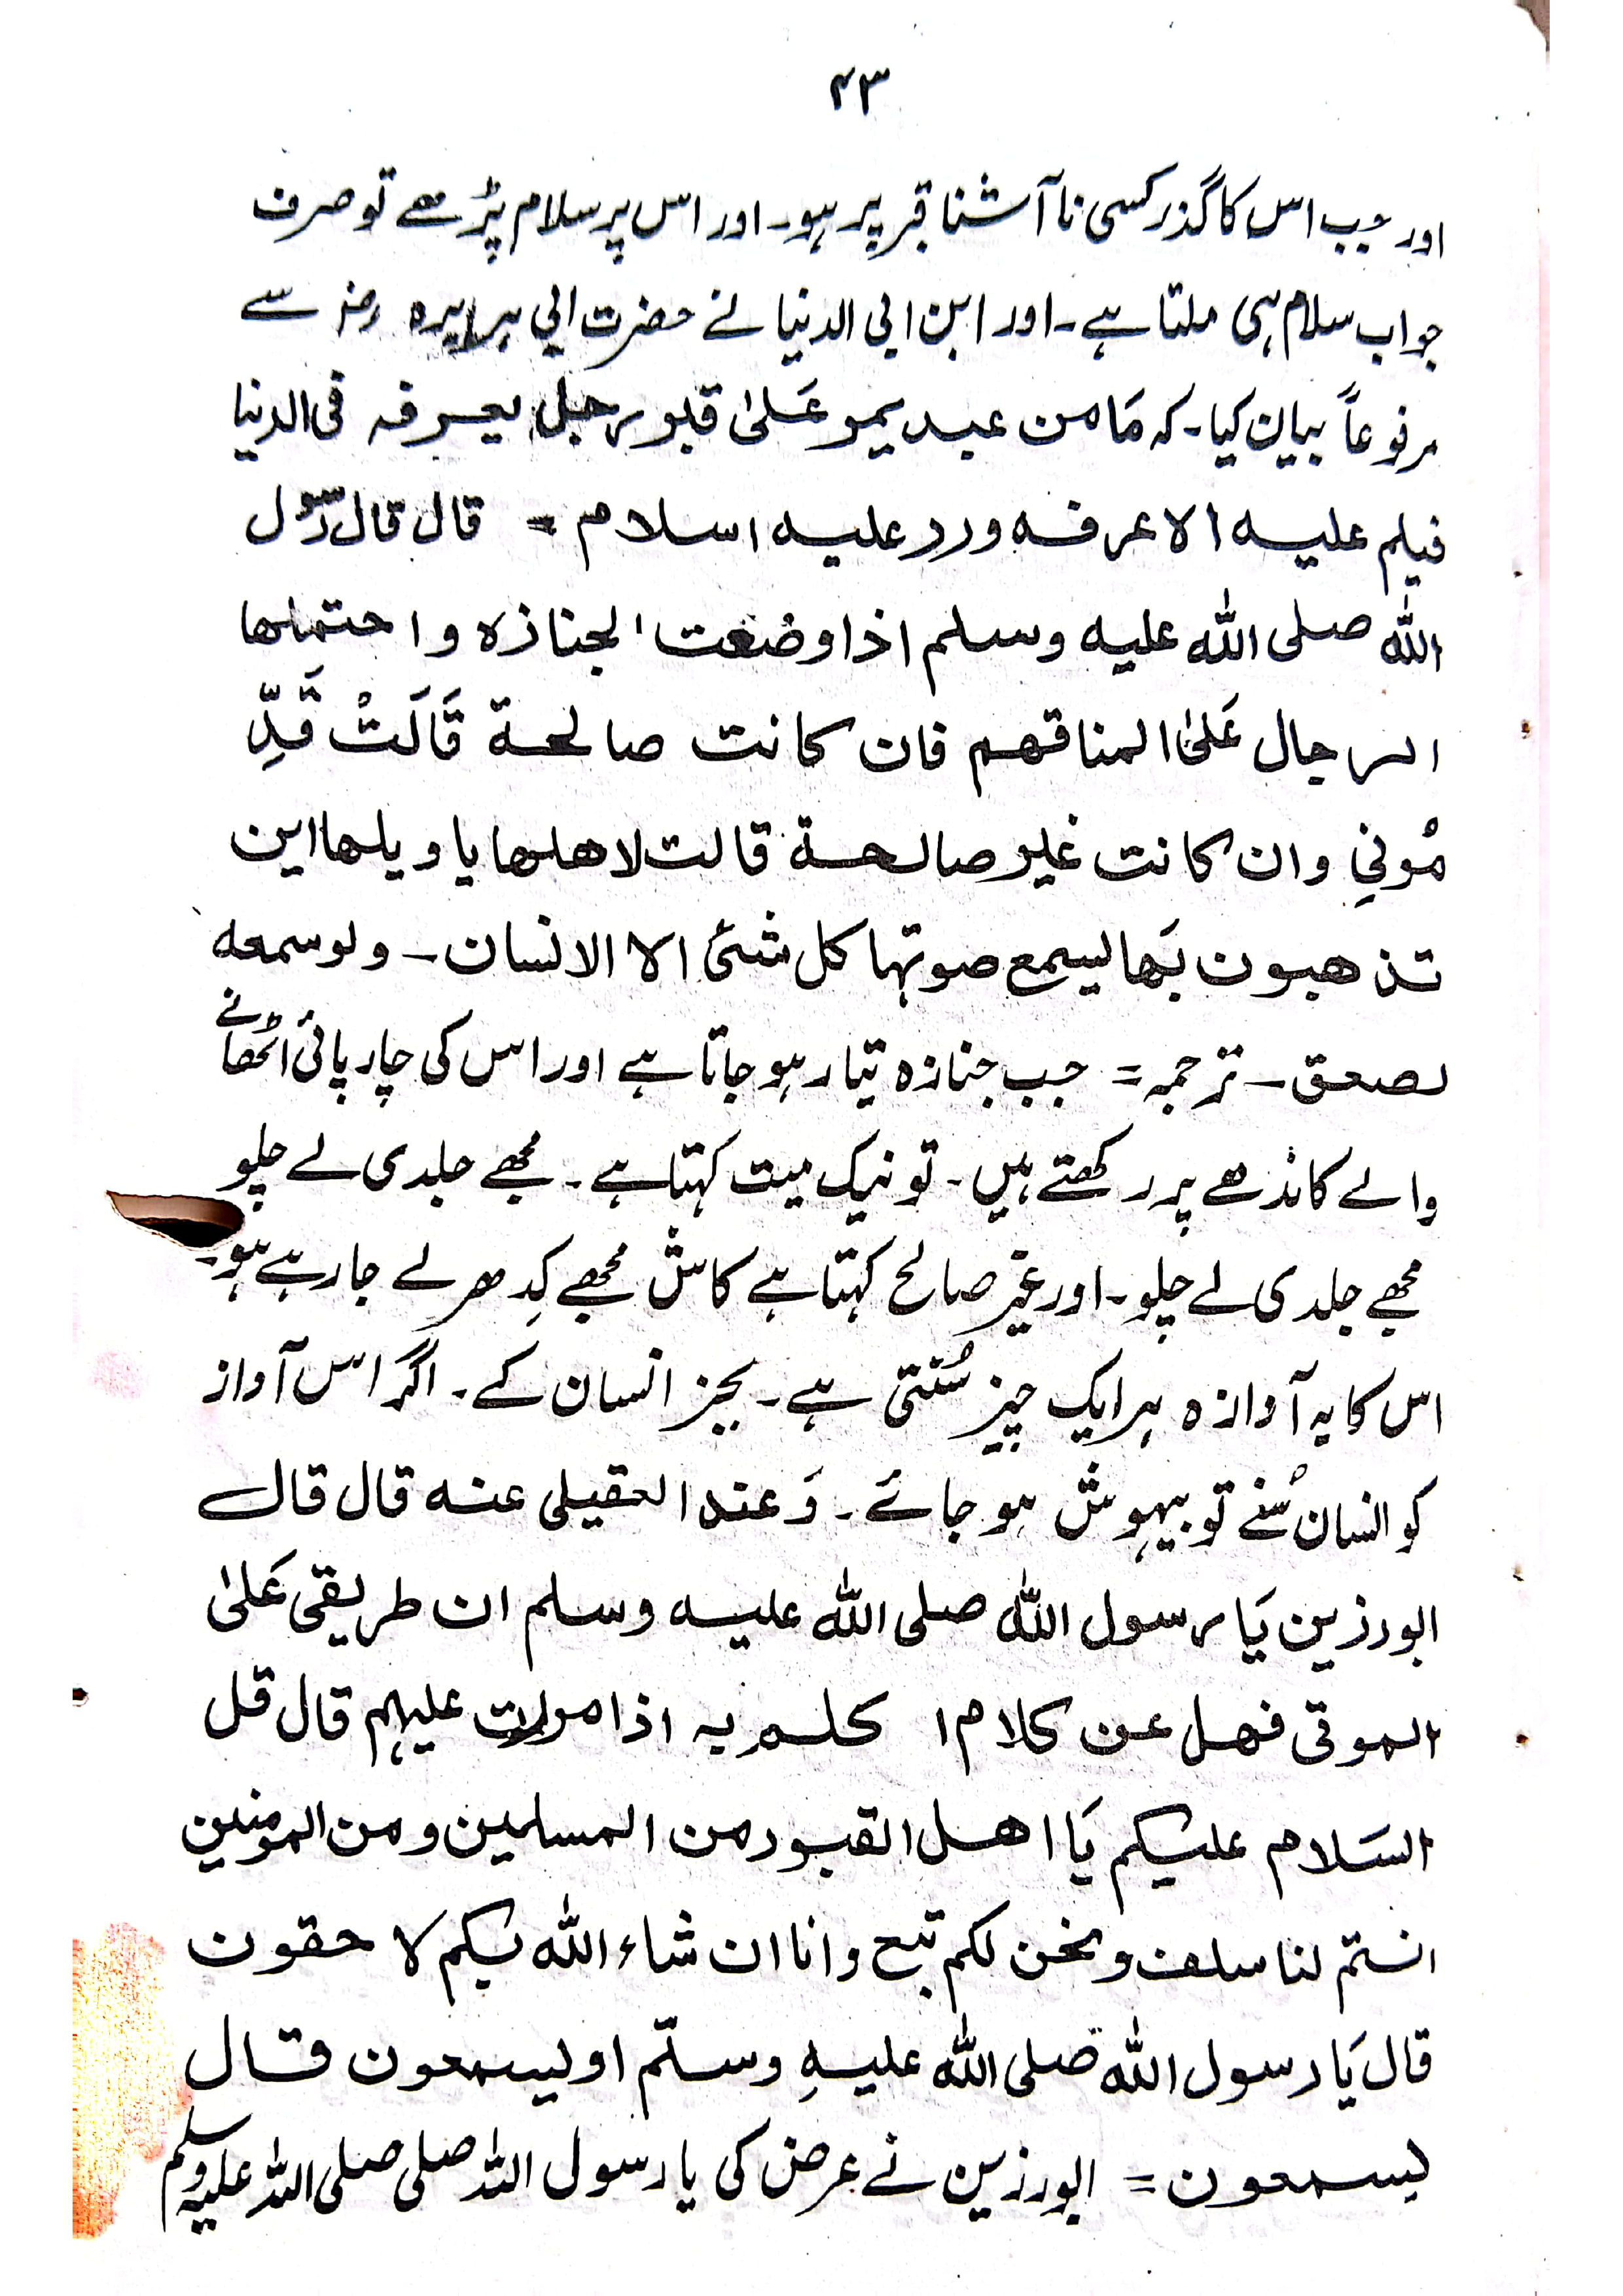 ۴۳
اور جب اس کا گذر کسی نا آشنا قبر پر ہو۔ اور اس پر سلام پڑھے تو صرف
جواب سلام ہی ملتا ہے۔ اور ابن ابی الدنیا نے حضرت ابی ہریرہ رضہ سے
مرفوعاً بیان کیا۔ کہ مَا من عبد یمو عَلیٰ قبلو رجل یعرفہ فی الدنیا
فیلم علیہ الا عرفہ ورد علیہ اسلام = قال قال رسول
اللہ صلی اللہ علیہ وسلم اذا وضعت الجنازہ و احتملھا
الرجال عَلیٰ المناقھم فان کانت صالحۃ قَالَتْ قَدِّ
مُونِي وان کانت غیر صالحۃ قالت لاھلھا یا ویلھا این
تذھبون بَھا لیسمع صوتہا کل شئ الا الانسان ۔ ولو سمعہ
لصعق ۔ ترجمہ = جب جنازہ تیار ہو جاتا ہے اور اس کی چارپائی اُٹھانے
والے کاندھے پر رکھتے ہیں۔ تو نیک میت کہتا ہے۔ مجھے جلدی لے چلو
مجھے جلدی لے چلو۔ اور غیر صالح کہتا ہے کاش مجھے کِدھر لے جا رہے ہو۔
اس کا یہ آوازہ ہر ایک چیز سُنتی ہے۔ بجز انسان کے۔ اگر اس آواز
کو انسان سُنے تو بیہوش ہو جائے۔ وَعند العقیلی عنہ قال قال
ابورزین یَا رسول اللہ صلی اللہ علیہ وسلم ان طریقی عَلیٰ
الموتی فھل عن کلام ا کلم بہ اذا مررت علیہم قال قل
السَلام علیکم یَا اھل القبور من المسلمین و من المومنین
انتم لنا سلف و نحن لکم تبع وانا ان شاء اللہ بکم لا حقون
قال یَا رسول اللہ صلی اللہ علیہِ وسلّم او لیسمعون قال
یسمعون = ابورزین نے عرض کی یا رسول اللہ صلی صلی اللہ علیہ وسلم